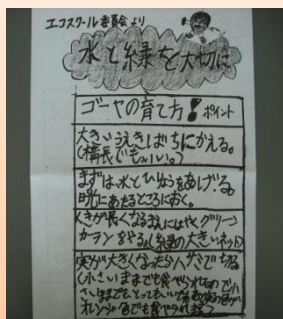 エコスクール委員会より
水と緑を大切に
ゴーヤの育て方！ポイント
大きいうえきばちにかえる。
(横長でもいい。)
まずは、水とひりょうをあげる。
日光にあたるところにおく。
くきが長くなるまえにはやくグリーン
カーテンをやる。(緑の大きいネット)
実が大きくなったらハサミで切る
(小さいままでも食べられるので小
さいままでもとってもいい
オレンジ色でも食べられます)